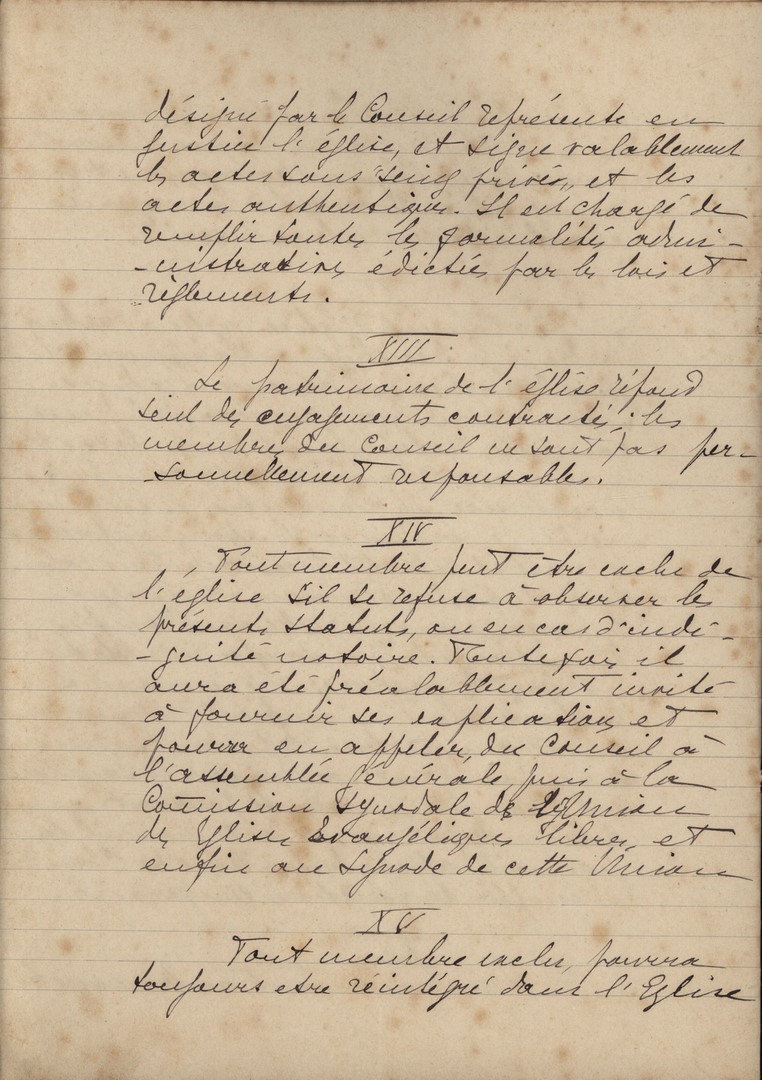 désigné par le Conseil représente en
justice l'église, et signe valablement
les actes sous seing privés, et les
actes authentiques. Il est chargé de
remplir toutes les formalités admi-
-nistratives édictées par les lois et
règlements.
XIII
Le patrimoine de l'église répond
seul des engagements contractés ; les
membres du Conseil ne sont pas per-
-sonnellement responsables.
XIV
Tout membre peut être exclu de
l'église s'il se refuse à observer les
présents statuts, ou en cas d'indi-
-gnité notoire. Toutefois il
aura été préalablement invité
à fournir ses explications et
pourra en appeler, du Conseil à
l'assemblée générale, puis à la
Comission synodale de l'Union
des Eglises Evangéliques libres, et
enfin au Synode de cette Union
XV
Tout membre exclu, pourra
toujours etre réintégré dans l'Eglise